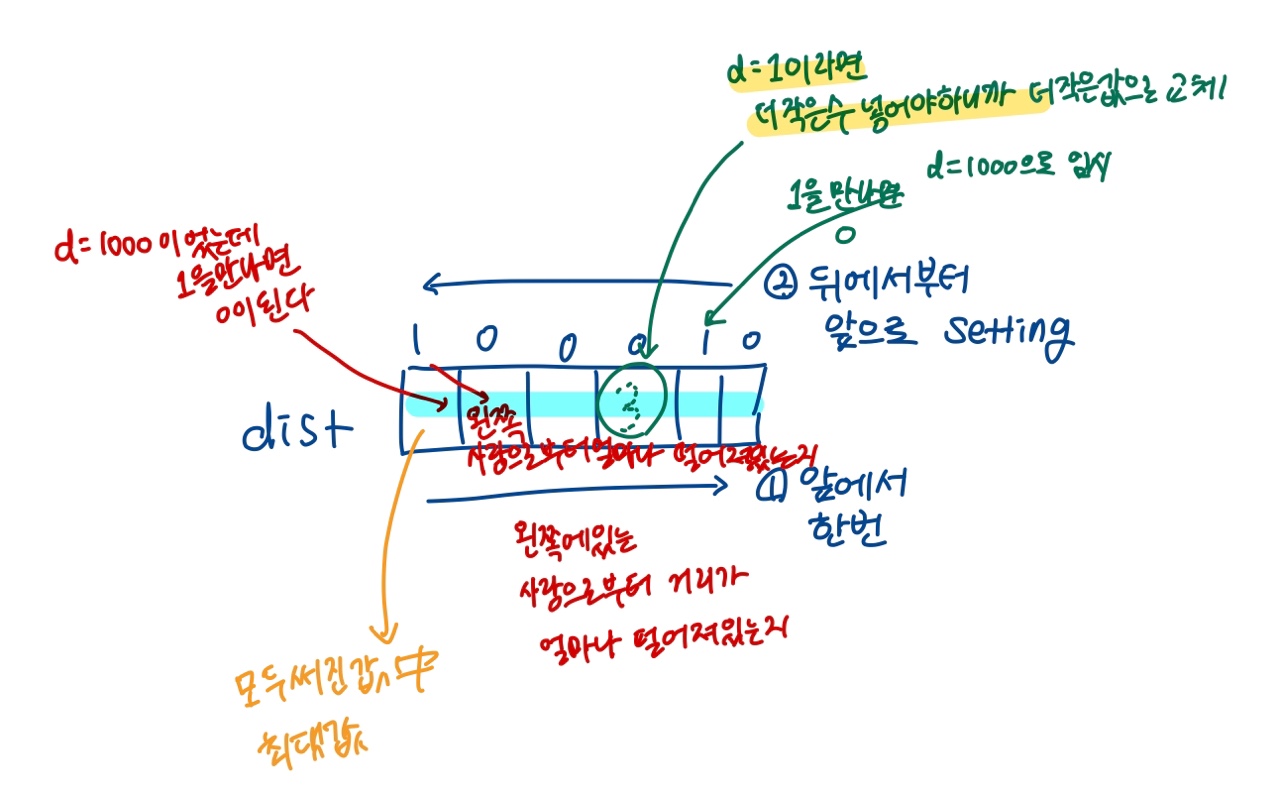 d=1이라면
더 작은수 넣어야하니까 더작은값으로 교체!
d=1000으로 임시
1을 만나면
0
d=1000이었는데
1을만나면
0이된다
② 뒤에서부터
앞으로 setting
1 0 0 0 1 0
dist
왼쪽
사람으로부터 얼마나 떨어져있는지
① 앞에서
한번
왼쪽에있는
사람으로부터 거리가
얼마나 떨어져있는지
모두써진값 中
최댓값